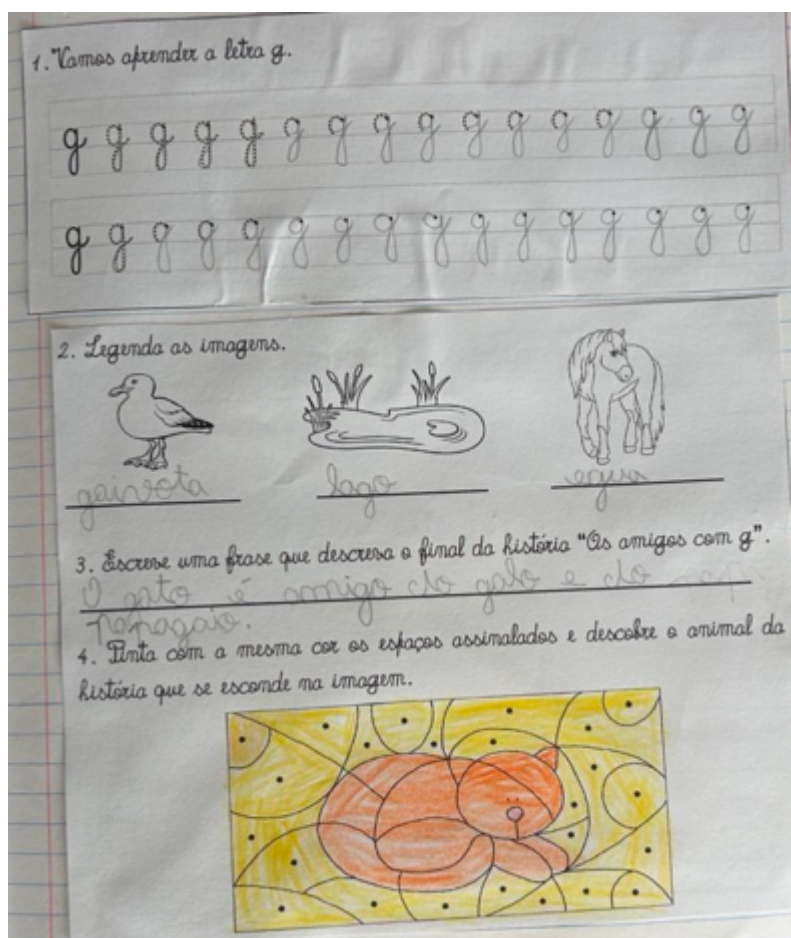 1. Vamos aprender a letra g.
g g g g g g g g g g g g g g g g
g g g g g g g g g g g g g g g g
2. Legenda as imagens.
gaivota lago egua
3. Escreve uma frase que descreva o final da história "Os amigos com g".
O gato é amigo do galo e do
papagaio.
4. Pinta com a mesma cor os espaços assinalados e descobre o animal da
história que se esconde na imagem.